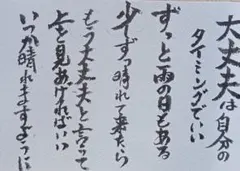 大丈夫は自分の
タイミングでいい
ずっと雨の日もある
少しずつ晴れて来たら
もう大丈夫と言って
上を見あげればいい
いつか晴れますように